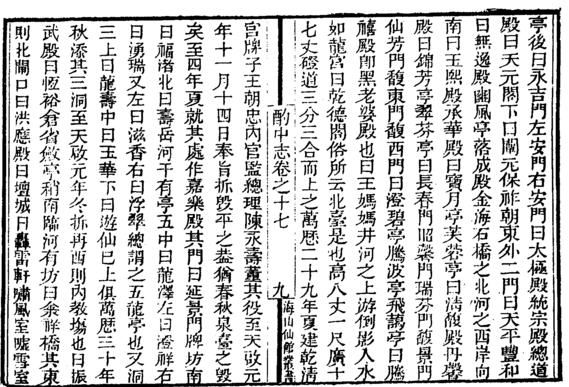 亭後曰永吉門左安門右安門曰太極殿統宗殿總道
殿曰天元閣下曰闡元保祚朝東外二門曰天平豐和
曰無逸殿豳風亭落成殿金海石橋之北河之西岸向
南曰玉熙殿承華殿曰寶月亭芙蓉亭曰清馥殿丹馨
殿曰錦芳亭翠芬亭曰長春門昭馨門瑞芬門馥景門
仙芳門馥東門馥西門曰澄碧亭騰波亭飛靄亭曰騰
禧殿卽黑老婆殿也曰王媽媽井河之上游倒影入水
如龍宮曰乾德閣俗所云北臺是也高八丈一尺廣十
七丈磴道三分三合而上之萬歷二十九年夏建乾淸
酌中志卷之十七 九 海山仙館叢書
宮牌子王朝忠內官監總理陳永壽董其役至天啟元
年十一月十四日奉旨拆毀平之蓋猶春秋泉臺之毀
矣至四年夏就其處作嘉樂殿其門曰延景門牌坊南
曰福渚北曰壽岳河干有亭五中曰龍澤左曰澄祥右
曰湧瑞又左曰滋香右曰浮翠總謂之五龍亭也又洞
三上曰龍壽中曰玉華下曰遊仙已上俱萬歷三十年
秋添其三洞至天啟元年冬拆再西則內教場也曰振
武殿曰恆裕倉省斂亭稍南臨河有坊曰乘祥橋其東
則北閘口曰洪應殿曰壇城曰轟雷軒嘯風室噓雪室